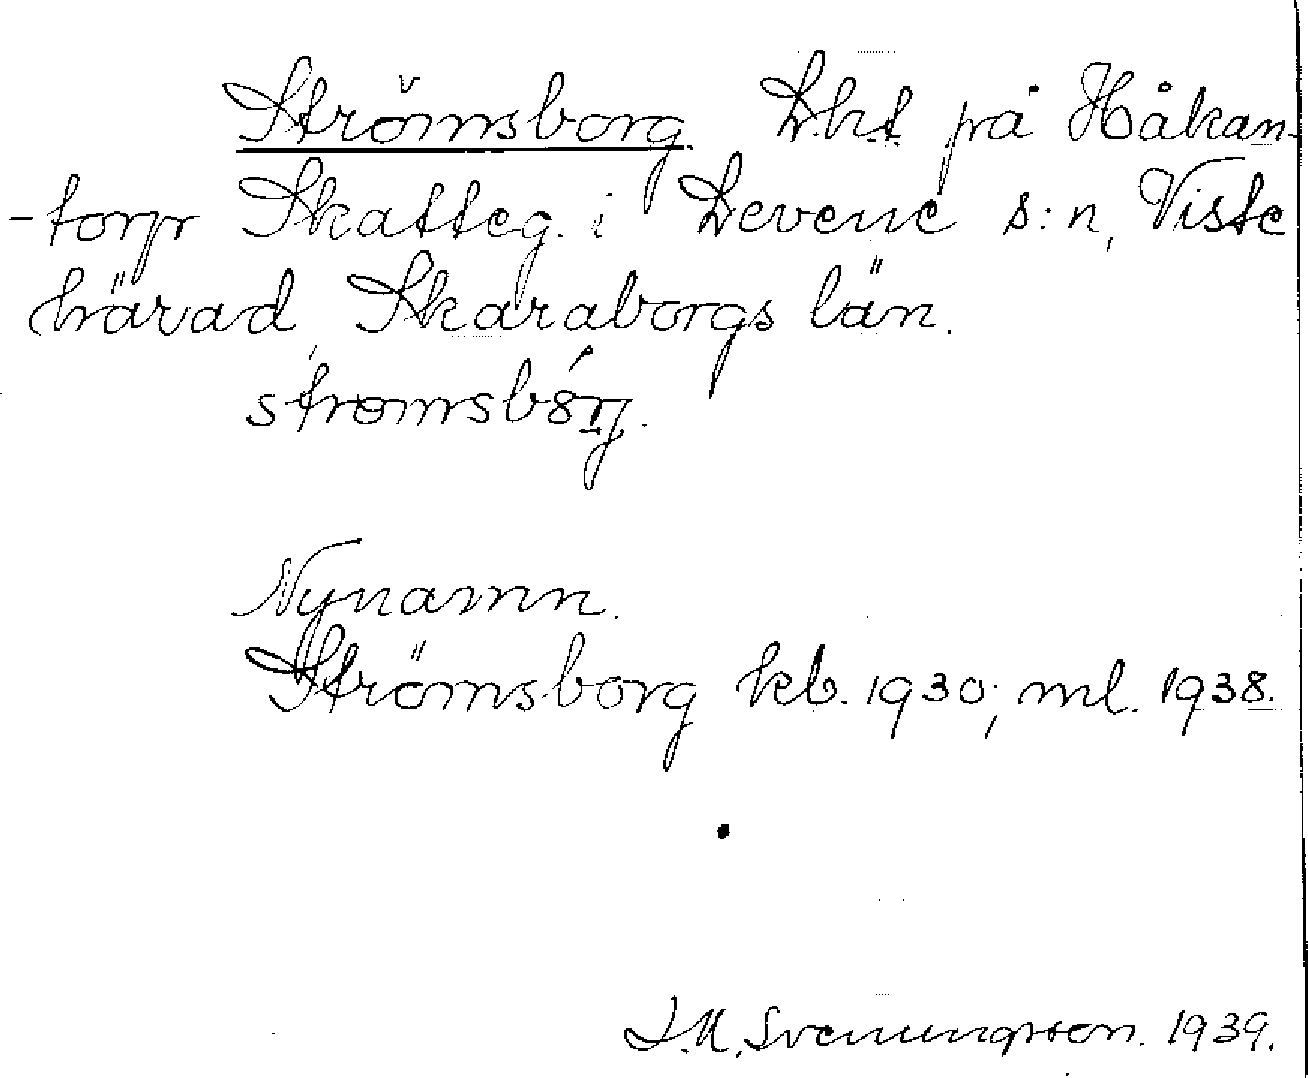 Strömsborg. Lht på Håkan-
-torp Skatteg. i Levene s:n, Viste
härad, Skaraborgs län.
Nynamn.
Strömsborg kb. 1930; ml. 1938.
J.M. Svenungsson. 1939.